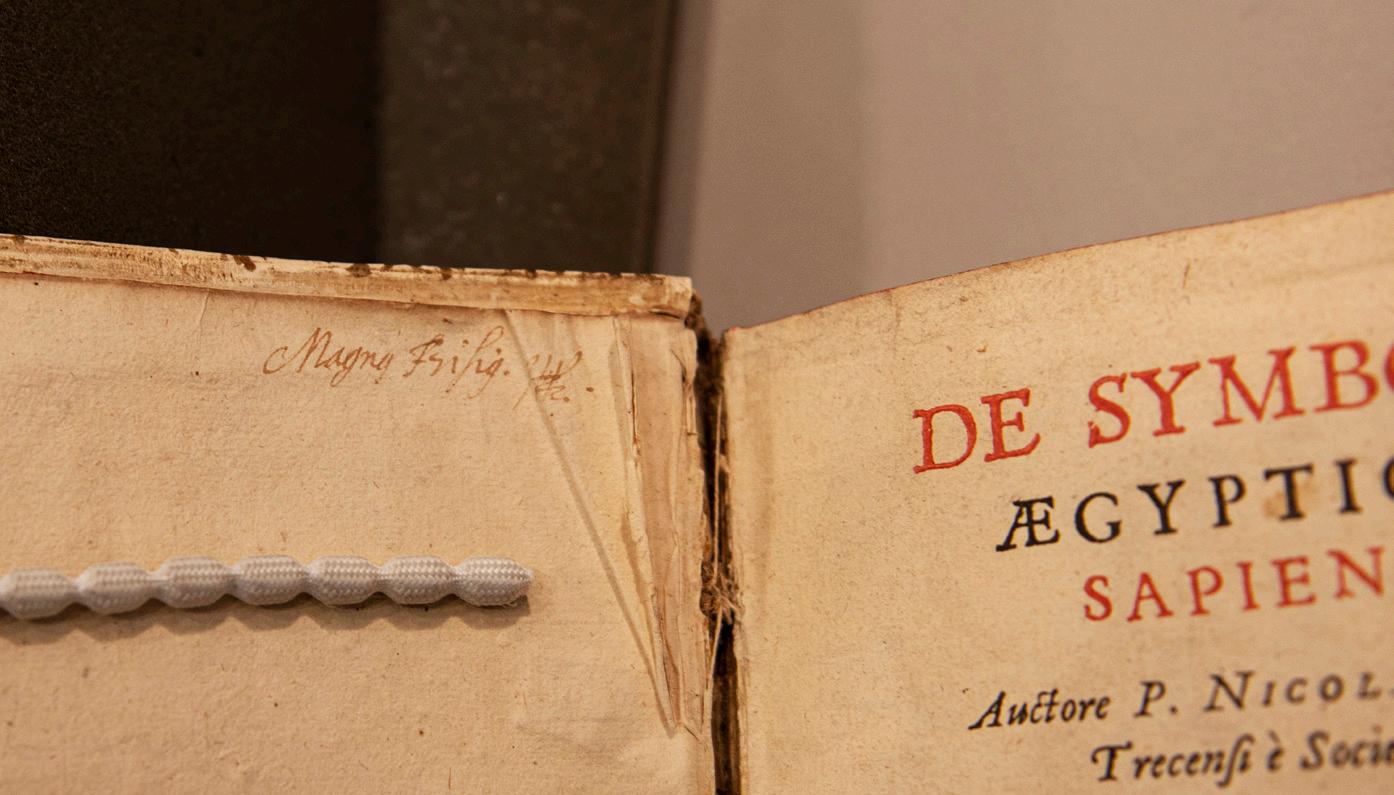 Magnq Frisig.
DE SYMBO
ÆGYPTIO
SAPIEN
Auctore P. NICOL.
Trecenſi è Socie